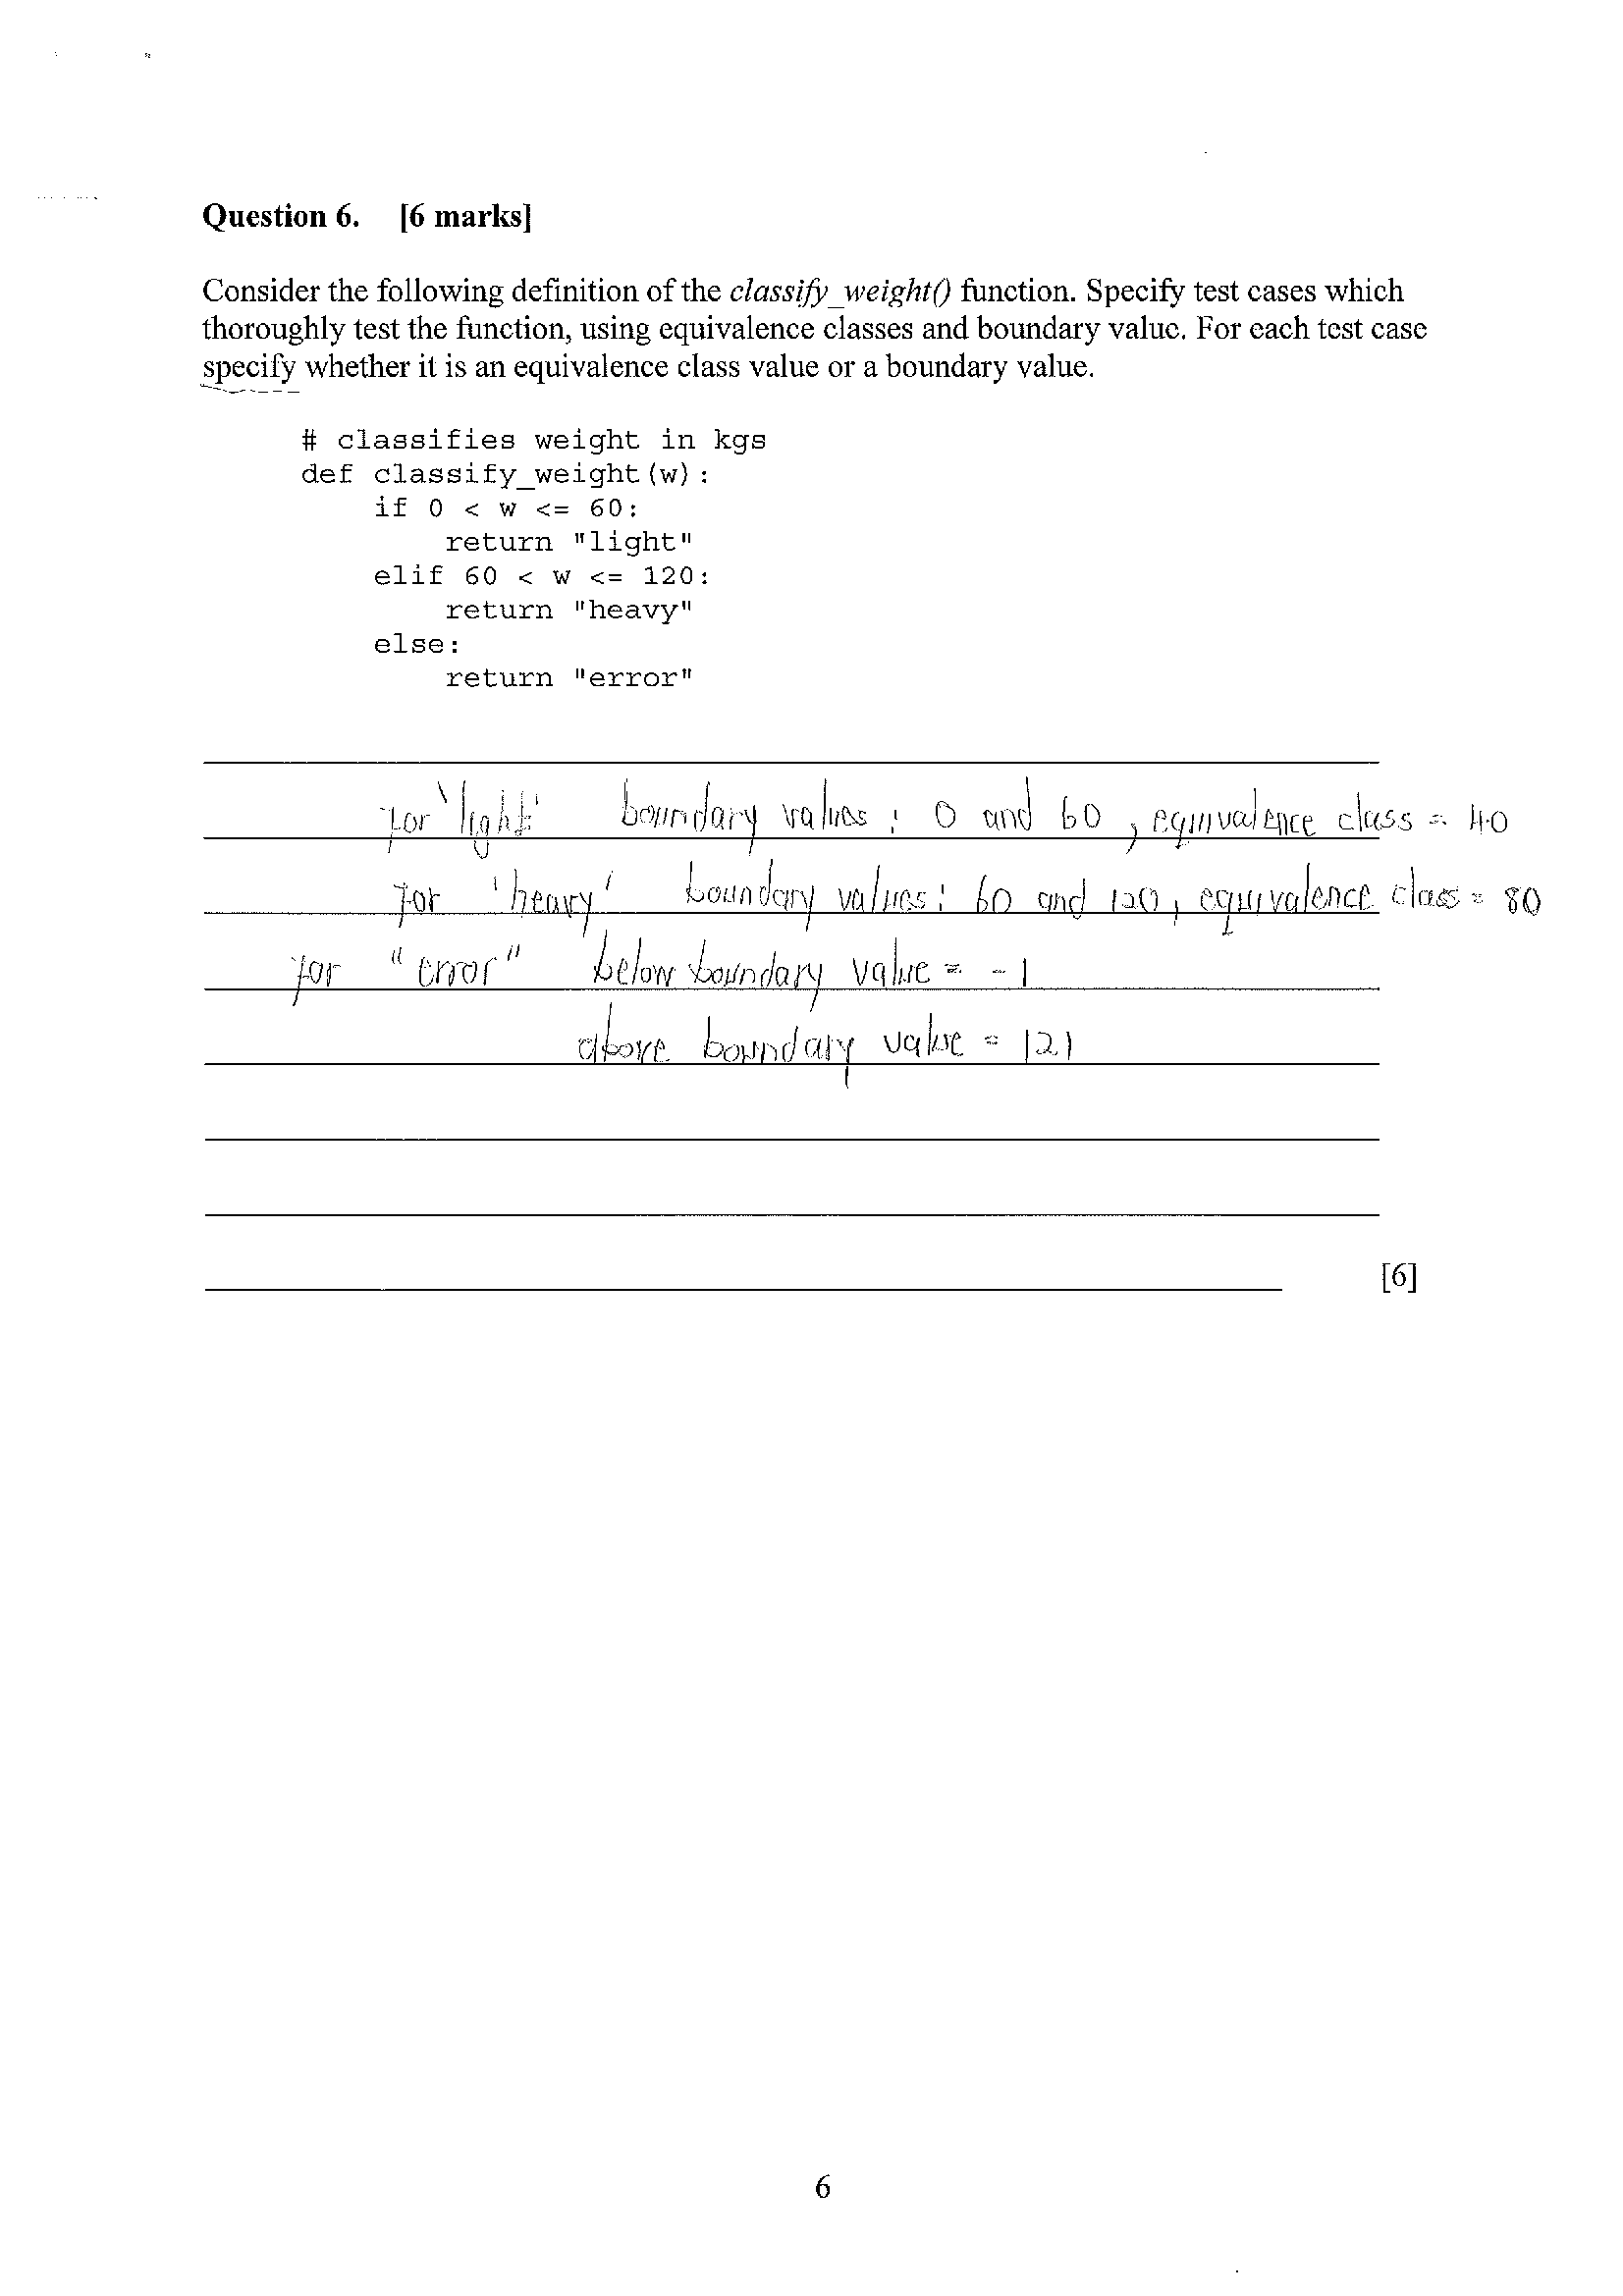 Question 6. [6 marks]
Consider the following definition of the classify_weight() function. Specify test cases which
thoroughly test the function, using equivalence classes and boundary value. For each test case
specify whether it is an equivalence class value or a boundary value.
# classifies weight in kgs
def classify_weight(w):
    if 0 < w <= 60:
        return "light"
    elif 60 < w <= 120:
        return "heavy"
    else:
        return "error"
for 'light' boundary values : 0 and 60 , equivalence class = 40
for 'heavy' boundary values : 60 and 120 , equivalence class = 80
for "error" below boundary value = -1
above boundary value = 121
[6]
6